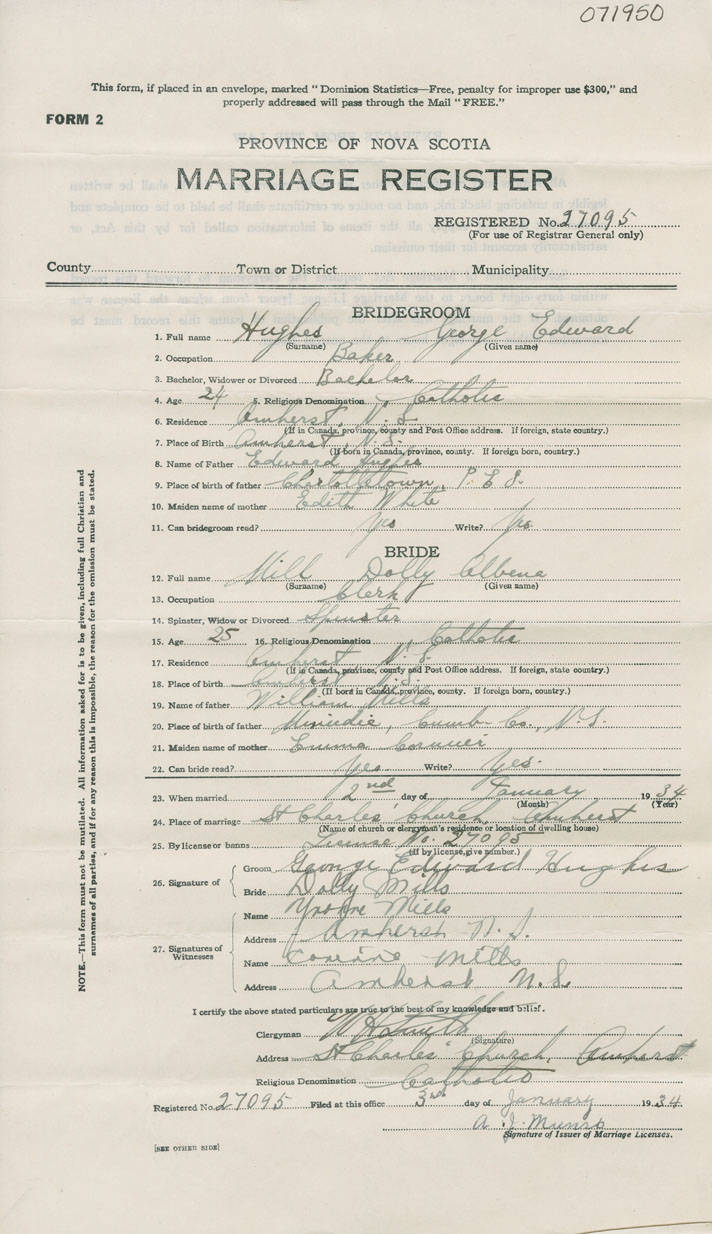 071950
This form, if placed in an envelope, marked "Dominion Statistics—Free, penalty for improper use $300," and
properly addressed will pass through the Mail "FREE."
FORM 2
PROVINCE OF NOVA SCOTIA
MARRIAGE REGISTER
REGISTERED No. 27095
(For use of Registrar General only)
County Town or District Municipality
BRIDEGROOM
1. Full name Hughes George Edward
(Surname) (Given name)
2. Occupation Baker
3. Bachelor, Widower or Divorced Bachelor
4. Age 24 5. Religious Denomination Catholic
6. Residence Amherst, N. S.
(If in Canada, province, county and Post Office address. If foreign, state country.)
7. Place of Birth Amherst, N. S.
(If born in Canada, province, county. If foreign born, country.)
8. Name of Father Edward Hughes
9. Place of birth of father Charlottetown, P. E. I.
10. Maiden name of mother Edith White
11. Can bridegroom read? Yes Write? Yes
BRIDE
12. Full name Mill Dolly Albena
(Surname) (Given name)
13. Occupation Clerk
14. Spinster, Widow or Divorced Spinster
15. Age 25 16. Religious Denomination Catholic
17. Residence Amherst N. S.
(If in Canada, province, county and Post Office address. If foreign, state country.)
18. Place of birth Amherst N.S.
(If born in Canada, province, county. If foreign born, country.)
19. Name of father William Mills
20. Place of birth of father Minudie, Cumb. Co., N. S.
21. Maiden name of mother Emma Cormier
22. Can bride read? Yes Write? Yes.
23. When married 2nd day of January 1934
(Month) (Year)
24. Place of marriage St Charles' Church, Amherst
(Name of church or clergyman's residence or location of dwelling house)
25. By license or banns License No. 27095
(If by license, give number.)
26. Signature of Groom George Edward Hughes
Bride Dolly Mills
27. Signatures of Witnesses Name Yvonne Mills
Address Amherst N. S.
Name Corinne Mills
Address Amherst N. S.
I certify the above stated particulars are true to the best of my knowledge and belief.
Clergyman W H Smyth
(Signature)
Address St Charles' Church, Amherst
Religious Denomination Catholic
Registered No. 27095 Filed at this office 3rd day of January 1934
A. J. Munro
Signature of Issuer of Marriage Licenses.
[SEE OTHER SIDE]
NOTE.—This form must not be mutilated. All information asked for is to be given, including full Christian and
surnames of all parties, and if for any reason this is impossible, the reason for the omission must be stated.